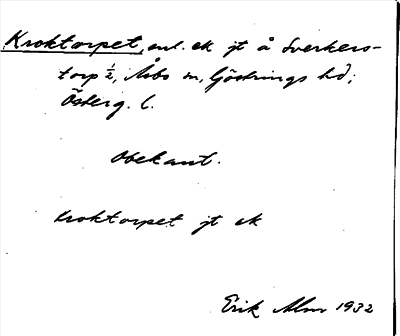 Kroktorpet, enl. ek jt å Sverkers-
torp ½, Åsbo sn, Göstrings hd,
Österg. l.
Obekant.
Kroktorpet jt ek
Erik Alm 1932